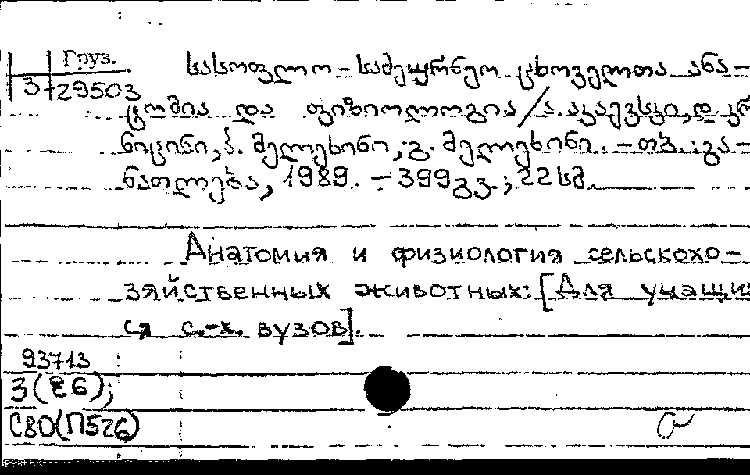 Груз.
3 29503
სასოფლო-სამეურნეო ცხოველთა ანა-
ტომია და ფიზიოლოგია/ა.აკაევსკი,დ.კრ
ნიცინი,ბ. მელეხინი,გ. მელეხინი. -თბ.:გა-
ნათლება, 1989. - 399გვ.; 22სმ.
Анатомия и физиология сельскохо-
зяйственных животных: [Для учащи
ся с.-х. вузов].
93713
3(26);
СВО(П526)